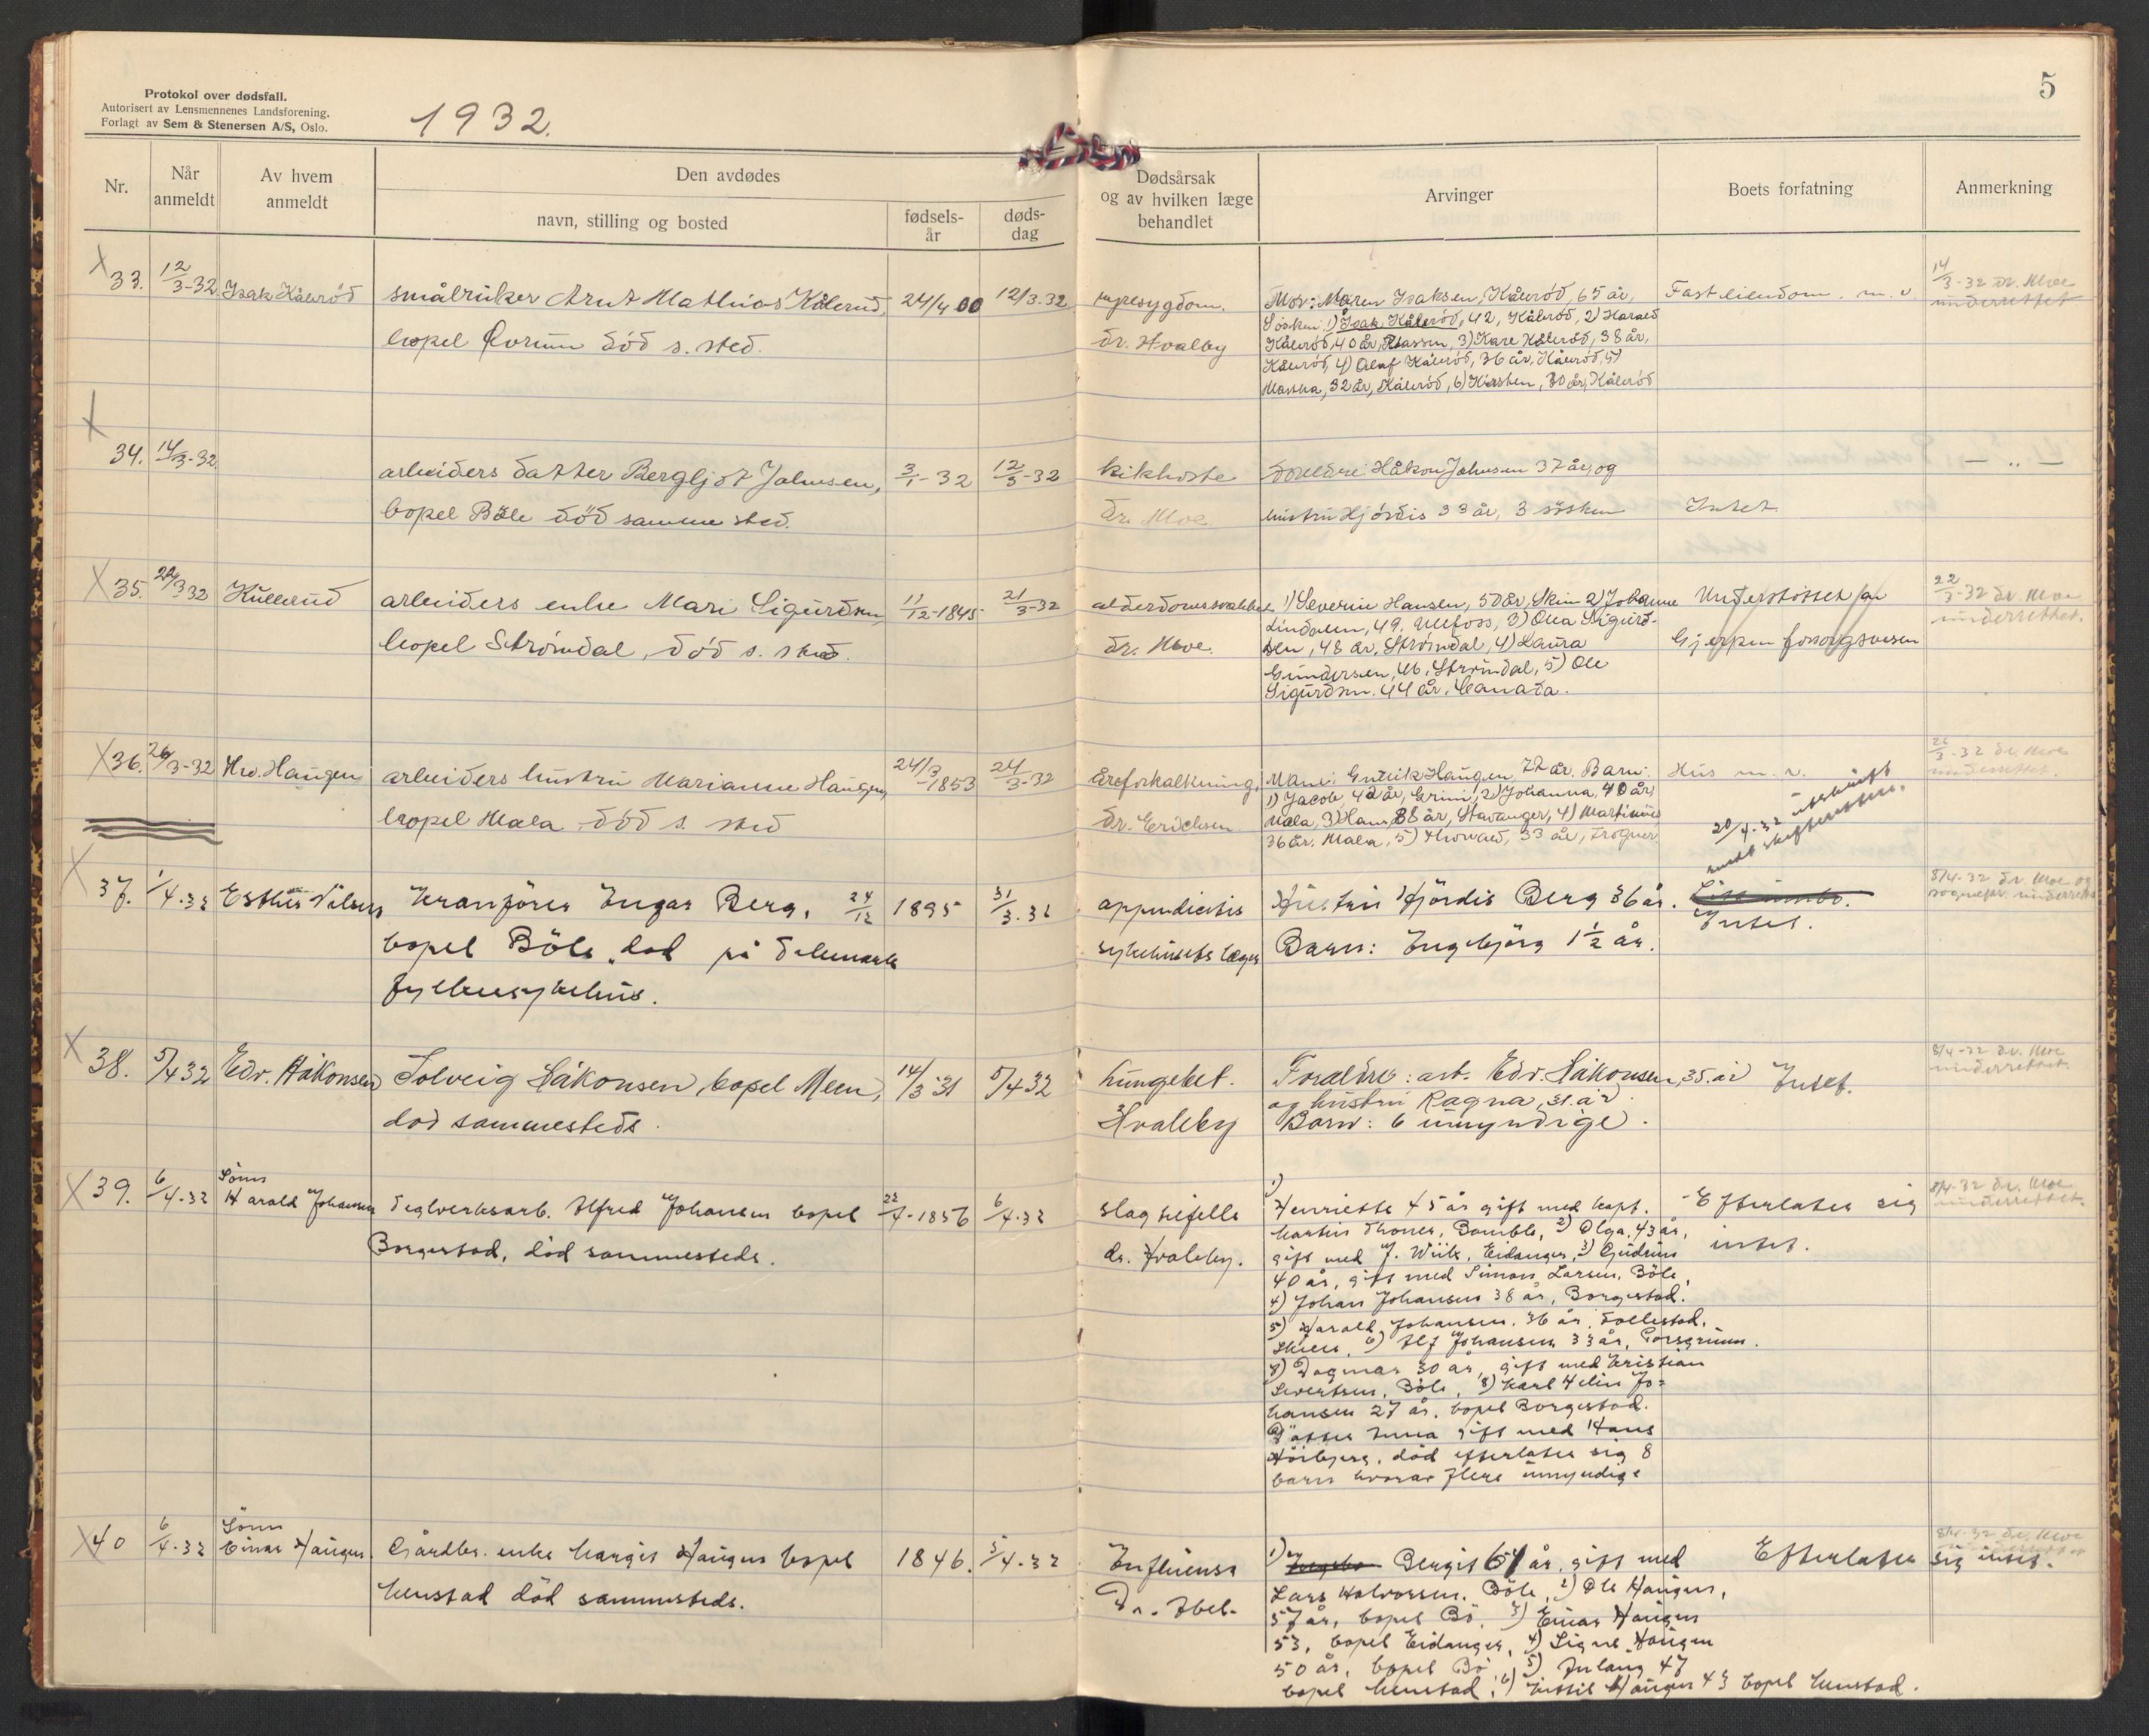 Protokol over dødsfall.
Autorisert av Lensmennenes Landsforening.
Forlagt av Sem & Stenersen A/S, Oslo.
1932.
5
Nr.
Når anmeldt
Av hvem anmeldt
Den avdødes
navn, stilling og bosted
fødsels-år
døds-dag
Dødsårsak og av hvilken læge behandlet
Arvinger
Boets forfatning
Anmerkning
33. 12/3-32 Isak Kålerød
småbruker Arnt Mathias Kålerud, 24/4 00 12/3.32
bopel død s. sted.
dr. Hvalby
Mor: Maren Isaksen, Kålerød, 65 år,
Søsken: 1) Isak Kålerød, 42, Kålerød, 2) Harald
Kålerød, 40 år, 3) Kare Kålerød, 38 år,
Kålerød, 4) Olaf Kålerød, 36 år, Kålerød, 5)
32 år, Kålerød, 6) Kirsten, 30 år, Kålerød
Fast eiendom. m. v.
14/3-32 dr. Moe
underrettet
34. 14/3-32
arbeiders datter Bergljot Johnsen, 3/1-32 12/3-32
bopel Böle död samme sted.
kikhoste
dr. Moe
Foreldre Håkon Johnsen 37 år, og
hustru Hjördis 33 år, 3 søsken
Intet
— " —
35. 22/3 32 Kullerud
arbeiders enke Mari Sigurdsen 11/12-1845 21/3-32
bopel Strömdal, död s. sted.
alderdomssvakhet
dr. Moe.
1) Severin Hansen, 50 år, Skien 2) Johanne
Lindalen, 49, Ulefoss, 3) Olea Sigurd-
sen, 48 år, Strömdal, 4) Laura
Gundersen, 46, Strömdal, 5) Ole
Sigurdsen. 44 år. Canada.
Understöttet av
Gjerpen forsorgsvesen
22/3-32 dr. Moe
underrettet.
36. 26/3-32 Hw. Haugen
arbeiders hustru Marianne Haugen, 24/3-1853 24/3-32
bopel Mæla död s. sted
åreforkalkning,
dr. Erichsen
Man: Haugen 77 år. Barn:
1) Jacob, 42 år, Grini, 2) Johanna, 40 år,
Mæla, 3) Hans, 38 år, Stavanger, 4)
36 år. Mæla, 5) 33 år, Frogner.
Hus m. v.
20/4-32 utskrift
sendt skifteretten.
26/3-32 dr. Moe
underrettet.
37. 1/4.32 Esther Nilsen
Kranförer Ingar Berg, 24/12 1895 31/3.32
bopel Böle, död på Telemark
fylkessykehus.
appendicitis
sykehusets læger
Hustru Hjördis Berg 36 år.
Barn: Ingebjörg 1½ år.
Intet.
8/4-32 dr. Moe og
sognepr. underrettet
38. 5/4 32 Edv. Håkonsen
Solveig Håkonsen, bopel Meen, 14/3 31 5/4 32
død sammesteds.
lungebet.
Hvalby
Foreldre: arb. Edv. Håkonsen, 35 år
og hustru Ragna, 31 år
Barn: 6 umyndige.
Intet.
8/4-32 dr. Moe
underrettet.
39. 6/4-32 Sönn
Harald Johansen
Teglverksarb. Alfred Johansen bopel 22/7-1856 6/4.32
Borgestad, död sammesteds.
slagtilfelle
dr. Hvalby.
1)
Henriette 45 år gift med kapt.
Martin Thoner, Bamble, 2) Olga, 43 år,
gift med J. Wiik, Eidanger, 3) Gudrun
40 år, gift med Simon Larsen, Böle,
4) Johan Johansen 38 år, Borgestad.
5) Harald Johansen. 36 år, Follestad,
Skien, 6) Alf Johansen 33 år, Porsgrunn.
7) Dagmar 30 år, gift med Kristian
Sivertsen, Böle, 8) Karl Jo=
hansen 27 år, bopel Borgestad.
Datter Anna gift med Hans
död efterlater sig 8
barn hvorav flere umyndige
Efterlater sig
intet.
8/4-32 dr. Moe
underrettet.
40 6/4-32 Sönn
Einar Haugen.
Gårdbr. enke Margit Haugen bopel 1846. 5/4-32
Menstad död sammesteds.
Influensa
Dr. Abel.
1) Bergit 61 år, gift med
Lars Halvorsen. Böle, 2) Ole Haugen,
57 år, bopel Bö. 3) Einar Haugen
53, bopel Eidanger, 4) Signe Haugen
50 år, bopel Bö, 5) 47
bopel Menstad, 6) Kittil Haugen 43 bopel Menstad.
Efterlater sig intet.
8/4-32 dr. Moe
underrettet